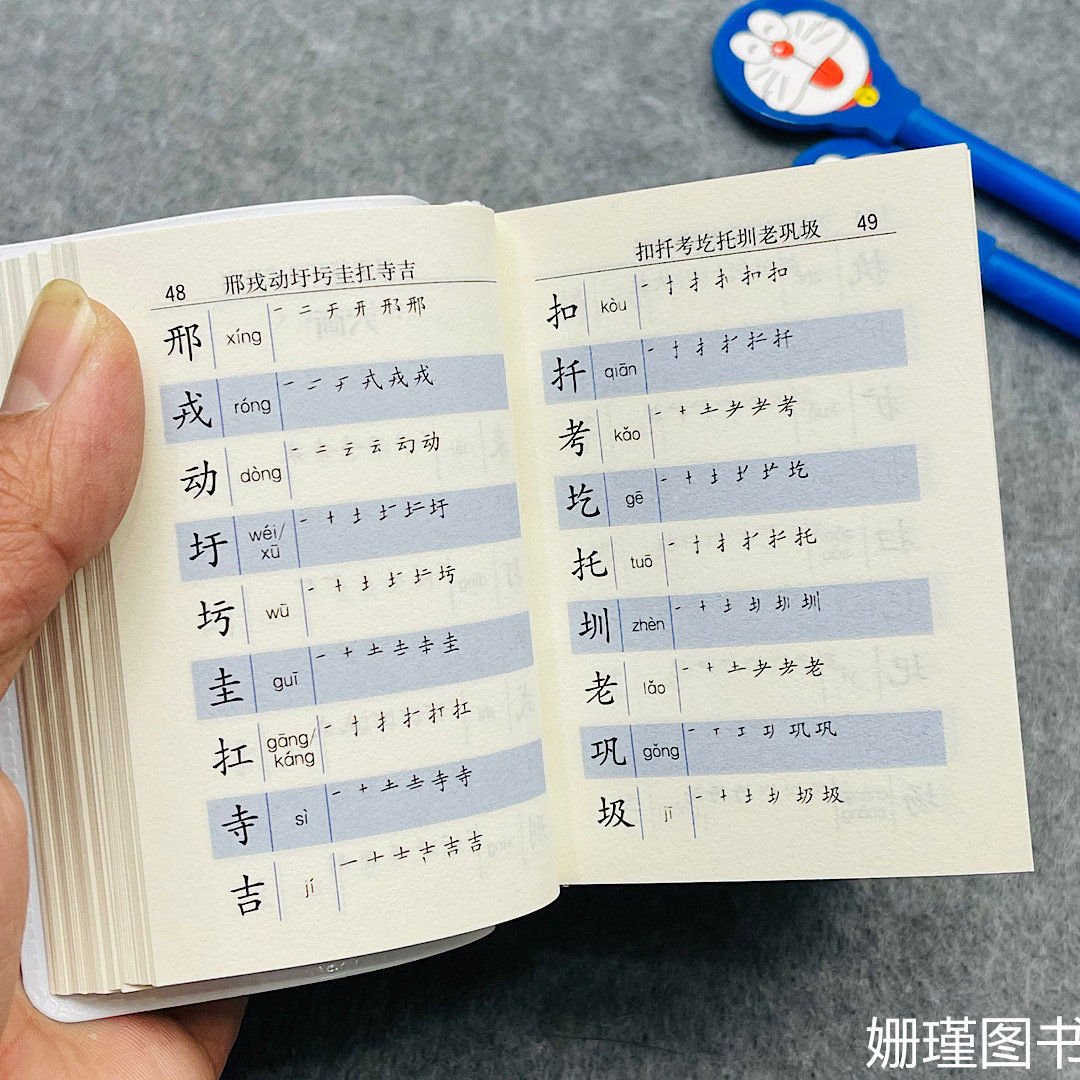 48 邢戎动圩圬圭扛寺吉
邢 xíng 一 二 于 开 邢 邢
戎 róng 一 二 于 式 戎 戎
动 dòng 一 二 云 云 动 动
圩 wéi/xū 一 十 土 圩
圬 wū 一 十 土 圬
圭 guī 一 十 土 圭 圭
扛 gāng/káng 一 十 扌 扛
寺 sì 一 十 土 寺 寺
吉 jí 一 十 士 吉 吉
扣扦考圪托圳老巩圾 49
扣 kòu 一 十 扌 扣 扣
扦 qiān 一 十 扌 扦
考 kǎo 一 十 土 耂 考
圪 gē 一 十 土 圪
托 tuō 一 十 扌 托
圳 zhèn 一 十 土 圳 圳
老 lǎo 一 十 土 耂 老 老
巩 gǒng 一 丅 工 巩 巩
圾 jī 一 十 土 圾 圾
姗瑾图书